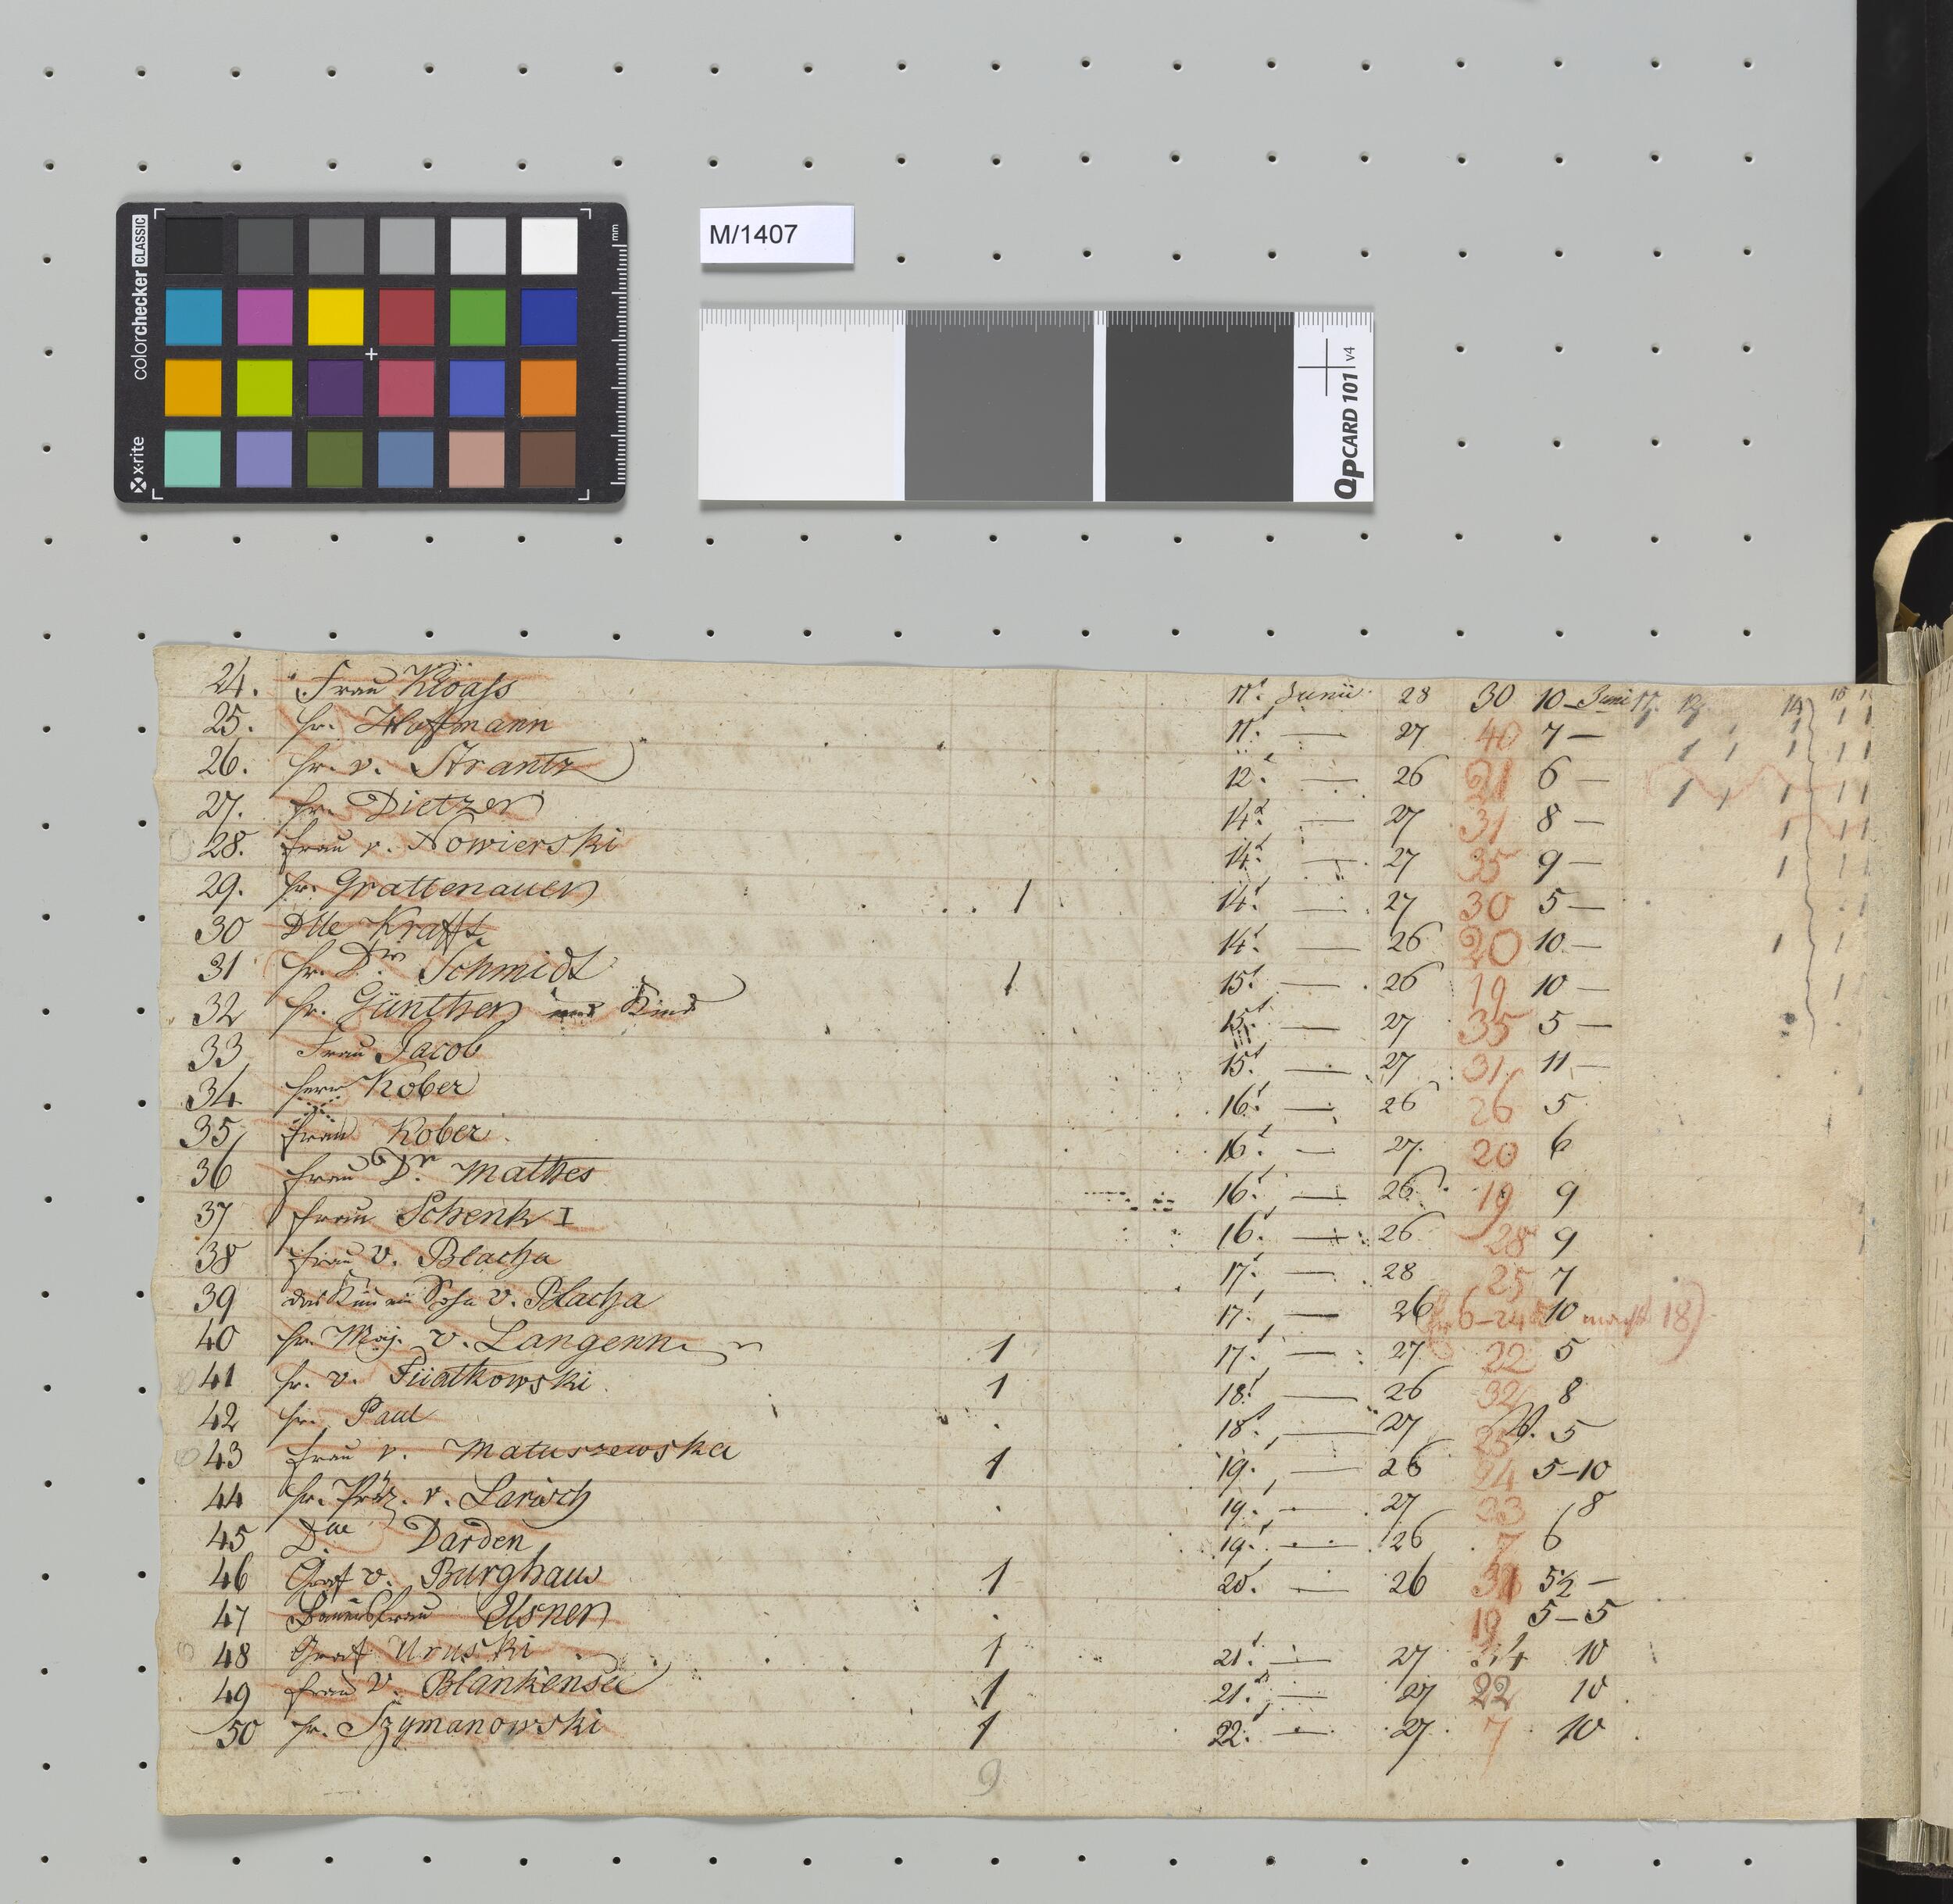 colorchecker CLASSIC
x-rite
mm
M/1407
QPCARD 101 v4
24. Frau Kloass 11t Junii 28 30 10 — Juni
25. Hr. Hoffmann 11t — 27 40 7 —
26. Hr. v. Strantz 12t — 26 21 6 —
27. Hr. Dietzer 14t — 27 31 8 —
28. Frau v. Nowierski 14t — 27 35 9 —
29. Hr. Grattenauer 1 14t — 27 30 5 —
30 Dlle Krafft 14t — 26 20 10 —
31 Hr. Dr. Schmidt 1 15t — 26 19 10 —
32 Hr. Günther und Kind 15t — 27 35 5 —
33 Frau Jacob 15t — 27 31 11 —
34 Herr Kober 16t — 26 26 5
35 Frau Kober 16t — 27 20 6
36 Frau Dr. Mathes 16t — 26 19 9
37 Frau Schenk I 16t — 26 28 9
38 Frau v. Blacha 17t — 28 25 7
39 Sohn v. Blacha 17t — 26 6–24 10 macht 18)
40 Hr. Maj. v. Langenn 1 17t — 27 22 5
41 Hr. v. Piiatkowski 1 18t — 26 32 8
42 Hr. Paul 18t — 27 5
43 Frau v. Matuszewska 1 19. — 26 24 5–10
44 Hr. Präz. v. Larisch 19. — 27 33 8
45 Darden 19t — 26 7 6
46 Graf v. Burghaus 1 20t — 26 5½ —
47 Bauersfrau Elsner 19 5–5
48 Graf Uruski 1 21t — 27 10
49 Frau v. Blankensee 1 21. — 27 22 10
50 Hr. Szymanowski 1 22t — 27 7 10
9